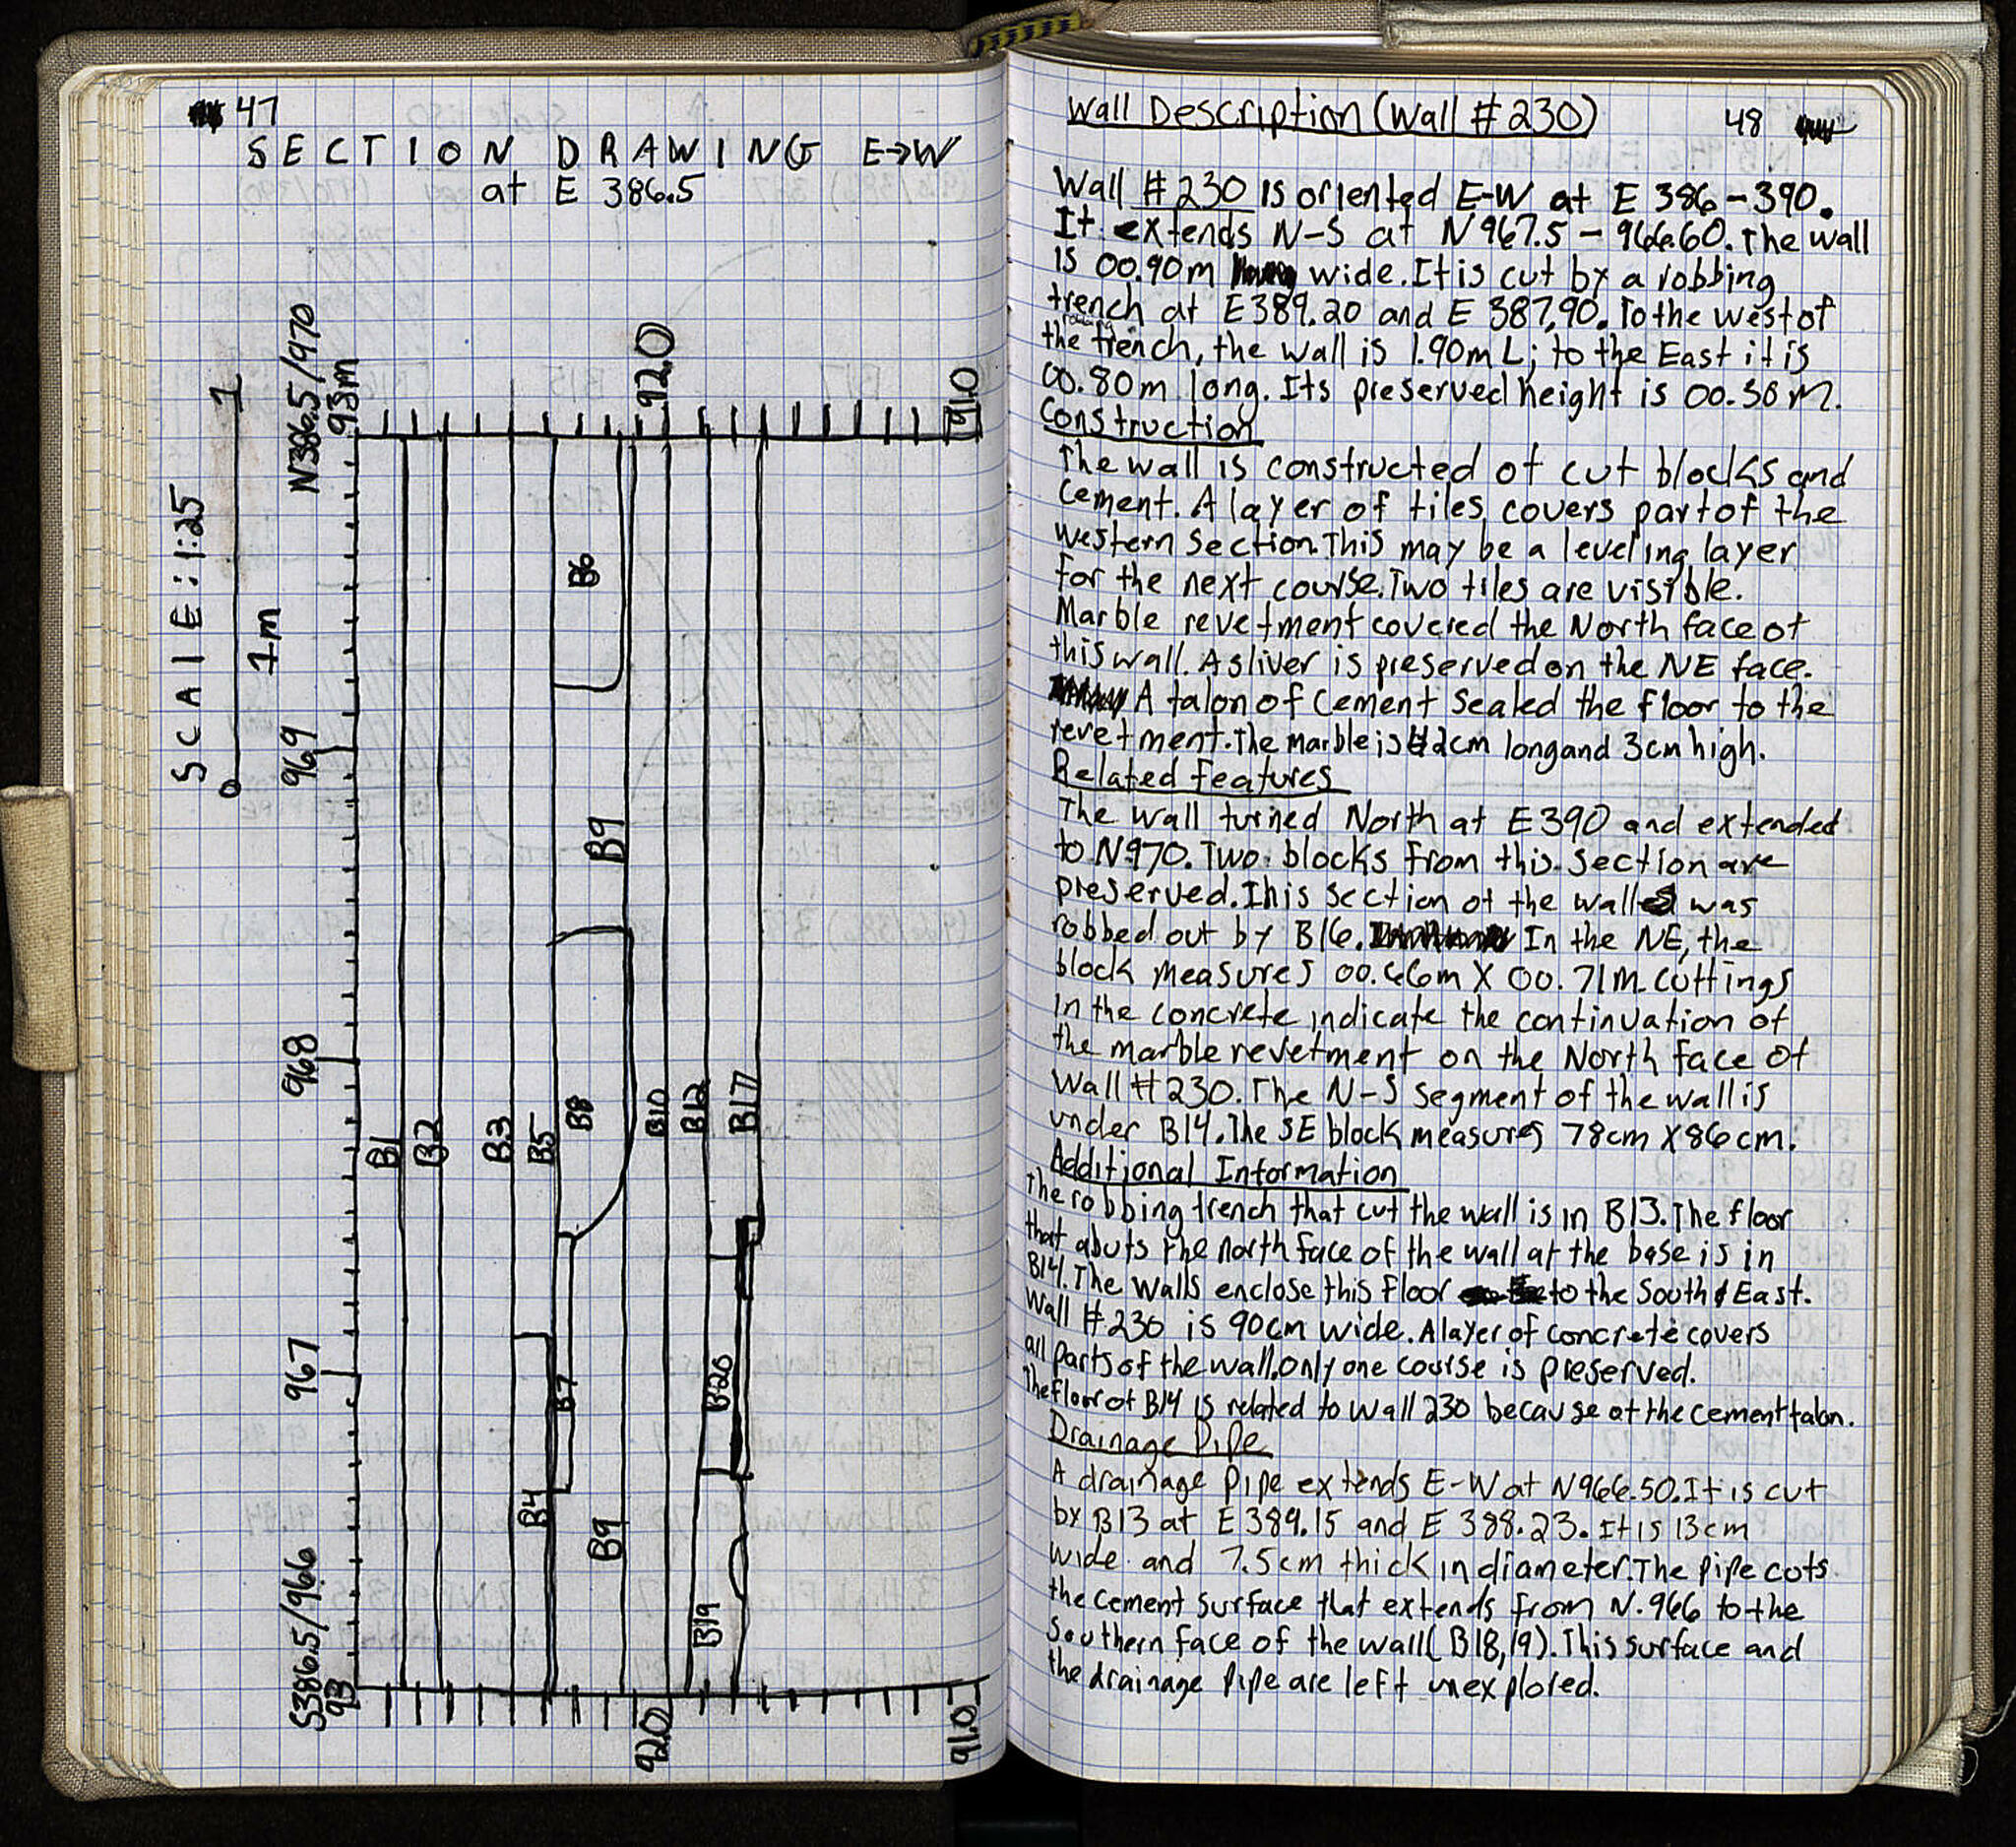 47
SECTION DRAWING E→W
at E 386.5
SCALE: 1:25
0 1
1m
N386.5/970
93m
92.0
91.0
969
968
967
S386.5/966
93
92.0
91.0
B6
B9
B1
B2
B3
B5
B8
B10
B12
B17
B7
B20
B4
B9
B19
Wall Description (Wall #230)
48
Wall #230 is oriented E-W at E 386-390.
It extends N-S at N967.5 - 966.60. The wall
is 00.90m wide. It is cut by a robbing
trench at E389.20 and E 387.90. To the west of
the robbing trench, the wall is 1.90m L; to the East it is
00.80m long. Its preserved height is 00.36m.
Construction
The wall is constructed of cut blocks and
cement. A layer of tiles covers part of the
western section. This may be a leveling layer
for the next course. Two tiles are visible.
Marble revetment covered the North face of
this wall. A sliver is preserved on the NE face.
A talon of cement sealed the floor to the
revetment. The marble is 42cm long and 3cm high.
Related Features
The wall turned North at E390 and extended
to N970. Two blocks from this section are
preserved. This section of the wall was
robbed out by B16. In the NE, the
block measures 00.66m X 00.71m. Cuttings
in the concrete indicate the continuation of
the marble revetment on the North face of
Wall #230. The N-S segment of the wall is
under B14. The SE block measures 78cm X 86cm.
Additional Information
The robbing trench that cut the wall is in B13. The floor
that abuts the north face of the wall at the base is in
B14. The walls enclose this floor to the South & East.
Wall #230 is 90cm wide. A layer of concrete covers
all parts of the wall. Only one course is preserved.
The floor of B14 is related to wall 230 because of the cement talon.
Drainage Pipe
A drainage pipe extends E-W at N966.50. It is cut
by B13 at E 389.15 and E 388.23. It is 13cm
wide and 7.5cm thick in diameter. The pipe cuts
the cement surface that extends from N.966 to the
Southern face of the wall (B18,19). This surface and
the drainage pipe are left unexplored.